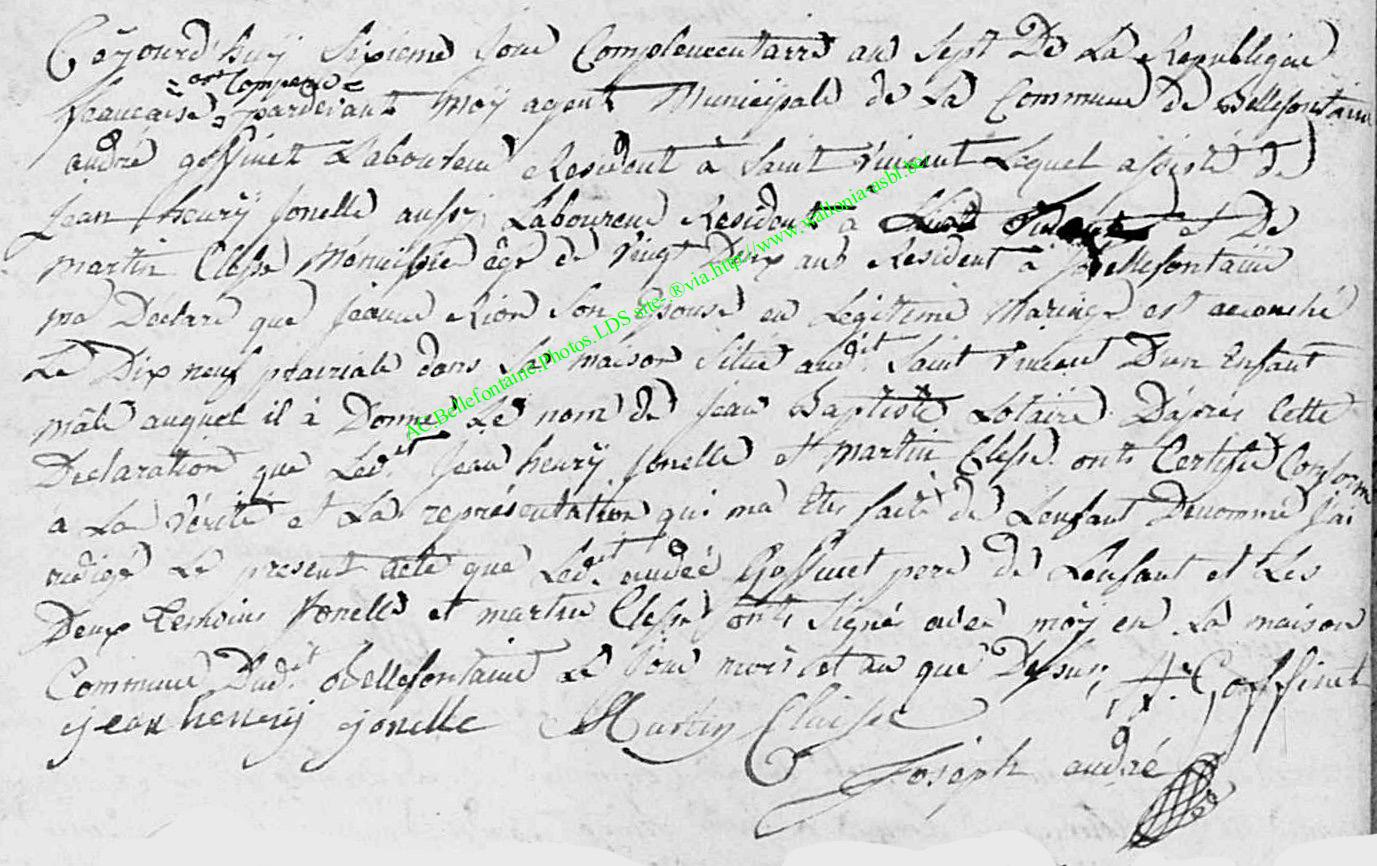 Cejourd'huÿ Sixieme Jour Complementaire an Sept De La Republique
=est Comparue=
francaise pardevant Moÿ agent Municipale de La Commune de Bellefontaine
andré goffinet Laboureur Resident à Saint Vincent Lequel assisté de
Jean henrÿ Jonelle aussi Laboureur Resident à et De
martin Clesse Menuisier âgé de Vingt Deux ans Resident à Bellefontaine
ma Déclaré que Jeanne Lion Son Epouse en Légitime Mariage est accouché
Le Dix neuf prairiale dans Sa maison Situé aud.it Saint Vincent D'un Enfant
mâle auquel il à Donné Le nom de Jean Baptiste Lotaire D'après Cette
Declaration que Led.it Jean henrÿ Jonelle et Martin Clesse onts Certifié Conforme
a La Vérité et La représentation qui ma Eté faite de L'enfant Denommé J'ai
rédigé Le present acte que Led.it andré Goffinet pere de L'enfant et Les
Deux Temoins Jonelle et martin Clesse onts Signé avec moÿ en La maison
Commune Dud.it Bellefontaine Le Jour mois et an que Dessus, A: Goffinet
jean henrij jonelle Martin Claisse
Joseph andré
AC.Bellefontaine.Photos.LDS site- ®via.http//www.wallonia-asbl.be/